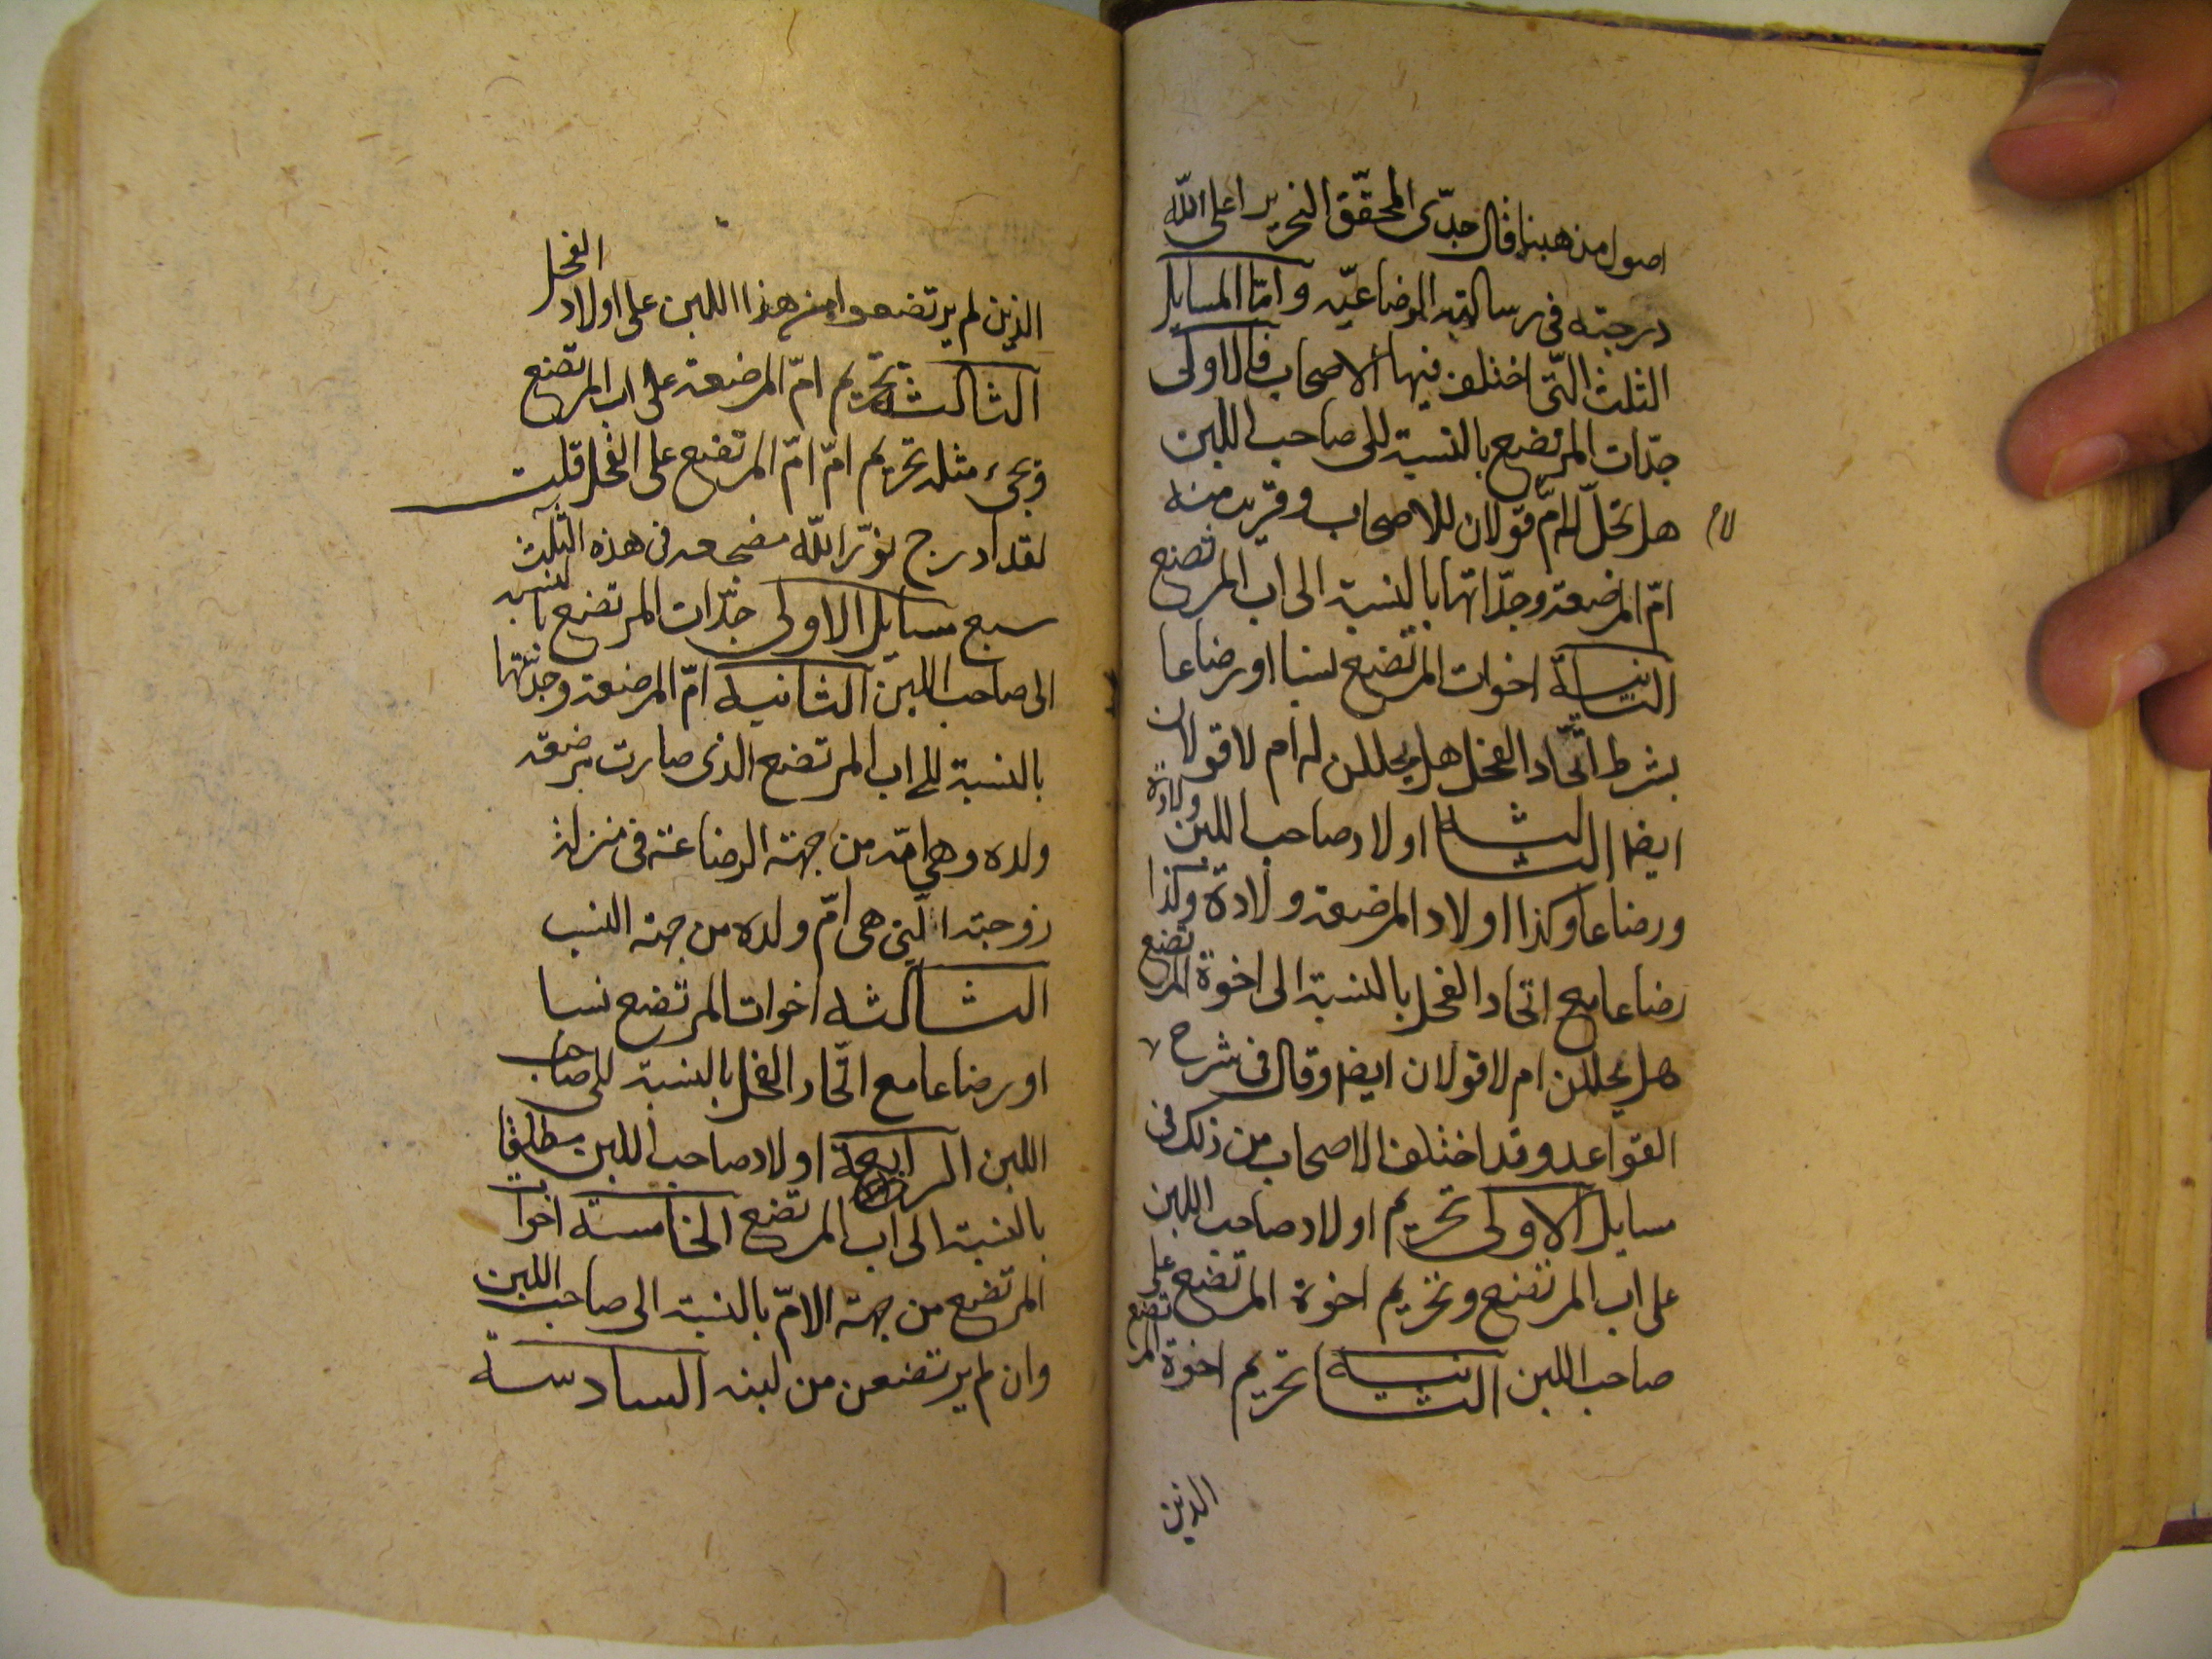 اصول مذهبنا قال جدّى المحقّق النحرير اعلى اللّه
درجته فى رسالته الرضاعيّه وامّا المسايل
الثلث الّتى اختلف فيها الاصحاب فالاولى
جدّات المرتضع بالنسبة الى صاحب اللبن
هل تحلّ له ام قولان للاصحاب وقريب منه
لام
امّ المرضعه وجدّاتها بالنسبة الى اب المرتضع
الثانية اخوات المرتضع نسبا او رضاعا
بشرط اتّحاد الفحل هل يحللن له ام لا قولان
ايضا الثالثه اولاد صاحب اللبن ولادة
ورضاعا وكذا اولاد المرضعه ولادة وكذا
رضاعا مع اتحاد الفحل بالنسبة الى اخوة المرتضع
هل يحللن ام لا قولان ايضا وقال فى شرح
القواعد وقد اختلف الاصحاب من ذلك فى
مسايل الاولى تحريم اولاد صاحب اللبن
على اب المرتضع وتحريم اخوة المرتضع على
صاحب اللبن الثانية تحريم اخوة المرتضع
الذين
الذين لم يرتضعوا من هذا اللبن على اولاد الفحل
الثالثه تحريم امّ المرضعه على اب المرتضع
ويجىء مثله تحريم امّ امّ المرتضع على الفحل قلت
لقد ادرج نوّر اللّه مضجعه فى هذه الثلث
سبع مسايل الاولى جدّات المرتضع بالنسبه
الى صاحب اللبن الثانيه امّ المرضعه وجدّاتها
بالنسبة الى اب المرتضع الذى صارت مرضعه
ولده وهى امّه من جهة الرضاعة فى منزلة
زوجته الّتى هى امّ ولده من جهة النسب
الثالثه اخوات المرتضع نسبا
او رضاعا مع اتّحاد الفحل بالنسبة الى صاحب
اللبن الرابعة اولاد صاحب اللبن مطلقا
بالنسبة الى اب المرتضع الخامسة اخوات
المرتضع من جهة الامّ بالنسبة الى صاحب اللبن
وان لم يرتضعن من لبنه السادسة